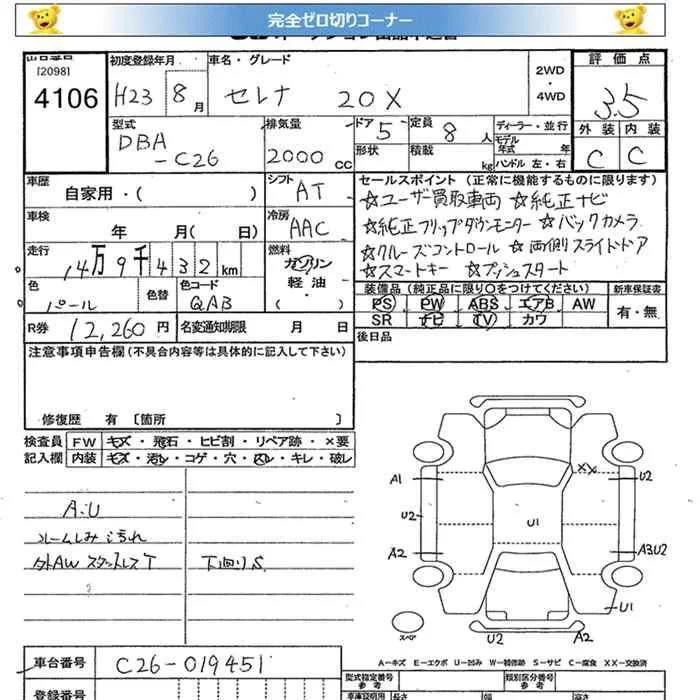 完全ゼロ切りコーナー
[2098]
4106
初度登録年月 H23 8月
車名・グレード セレナ 20X
2WD・4WD
評価点 3.5
外装 内装
C C
型式 DBA-C26
排気量 2000 CC
ドア 5
形状
定員 8 人
積載 kg
ディーラー・並行
モデル年式 年
ハンドル 左・右
車歴 自家用・( )
シフト AT
車検 年 月( 日)
冷房 AAC
走行 14万9千432km
燃料 ガソリン 軽油・( )
色 パール
色替
色コード QAB
R券 12,260円
名変通知期限 月 日
セールスポイント (正常に機能するものに限ります)
☆ユーザー買取車両 ☆純正ナビ
☆純正フリップダウンモニター ☆バックカメラ
☆クルーズコントロール ☆両側スライドドア
☆スマートキー ☆プッシュスタート
装備品 (純正品に限り○をつけてください)
新車保証書
PS PW ABS エアB AW
SR ナビ TV カワ
有・無
後日品
注意事項申告欄 (不具合内容等は具体的に記入して下さい)
修復歴 有 〔箇所 〕
検査員記入欄
FW キズ・飛石・ヒビ割・リペア跡・×要
内装 キズ・汚れ・コゲ・穴・スレ・キレ・破レ
A・U
ルームしみ 汚れ
外AW スタッドレスT
下回りS
A1
U2
A2
XX
U2
U1
A3U2
U1
スペア
U2
A2
A―キズ E―エクボ U―凹み W―補修跡 S―サビ C―腐食 XX―交換済
車台番号 C26-019451
登録番号
型式指定番号 参考
類別区分番号 参考
車庫証明用 長さ 幅 高さ